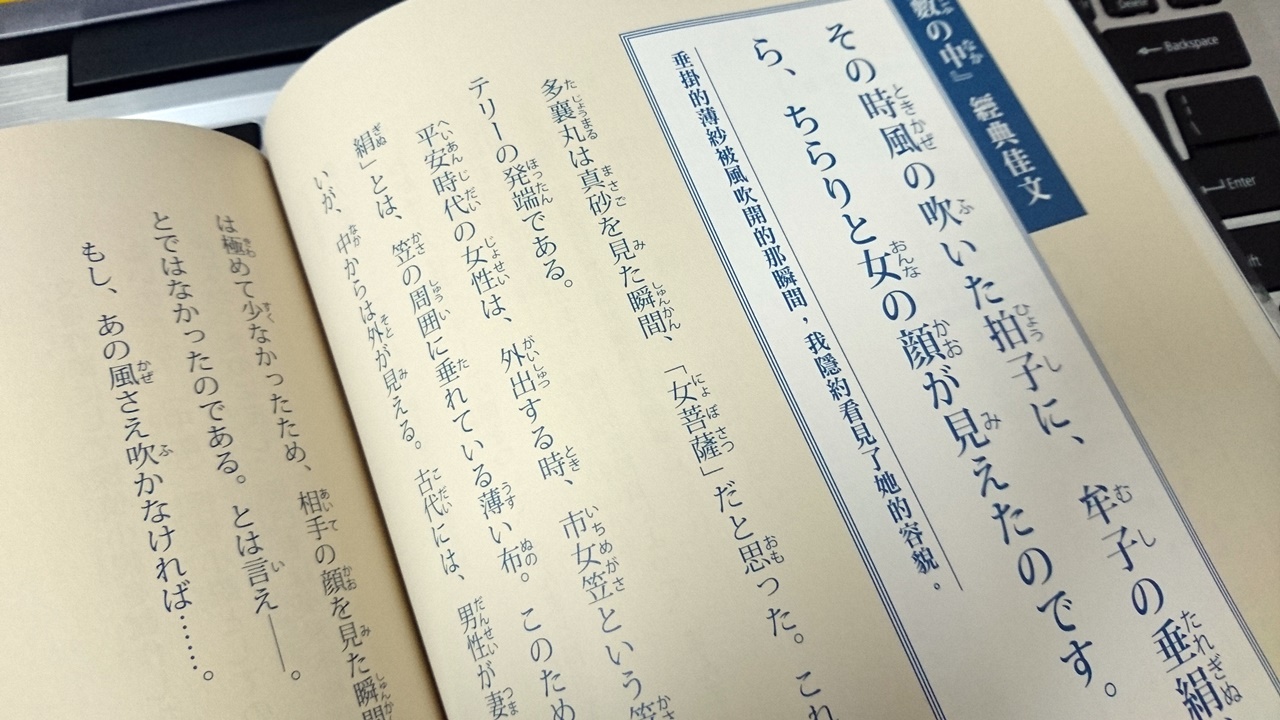 藪の中』 經典佳文
その時風の吹いた拍子に、牟子の垂絹
ら、ちらりと女の顔が見えたのです。
垂掛的薄紗被風吹開的那瞬間，我隱約看見了她的容貌。
多襄丸は真砂を見た瞬間、「女菩薩」だと思った。これ
テリーの発端である。
平安時代の女性は、外出する時、市女笠という笠
絹」とは、笠の周囲に垂れている薄い布。このため
いが、中からは外が見える。古代には、男性が妻
は極めて少なかったため、相手の顔を見た瞬間
とではなかったのである。とは言え――。
もし、あの風さえ吹かなければ……。
Backspace
Enter